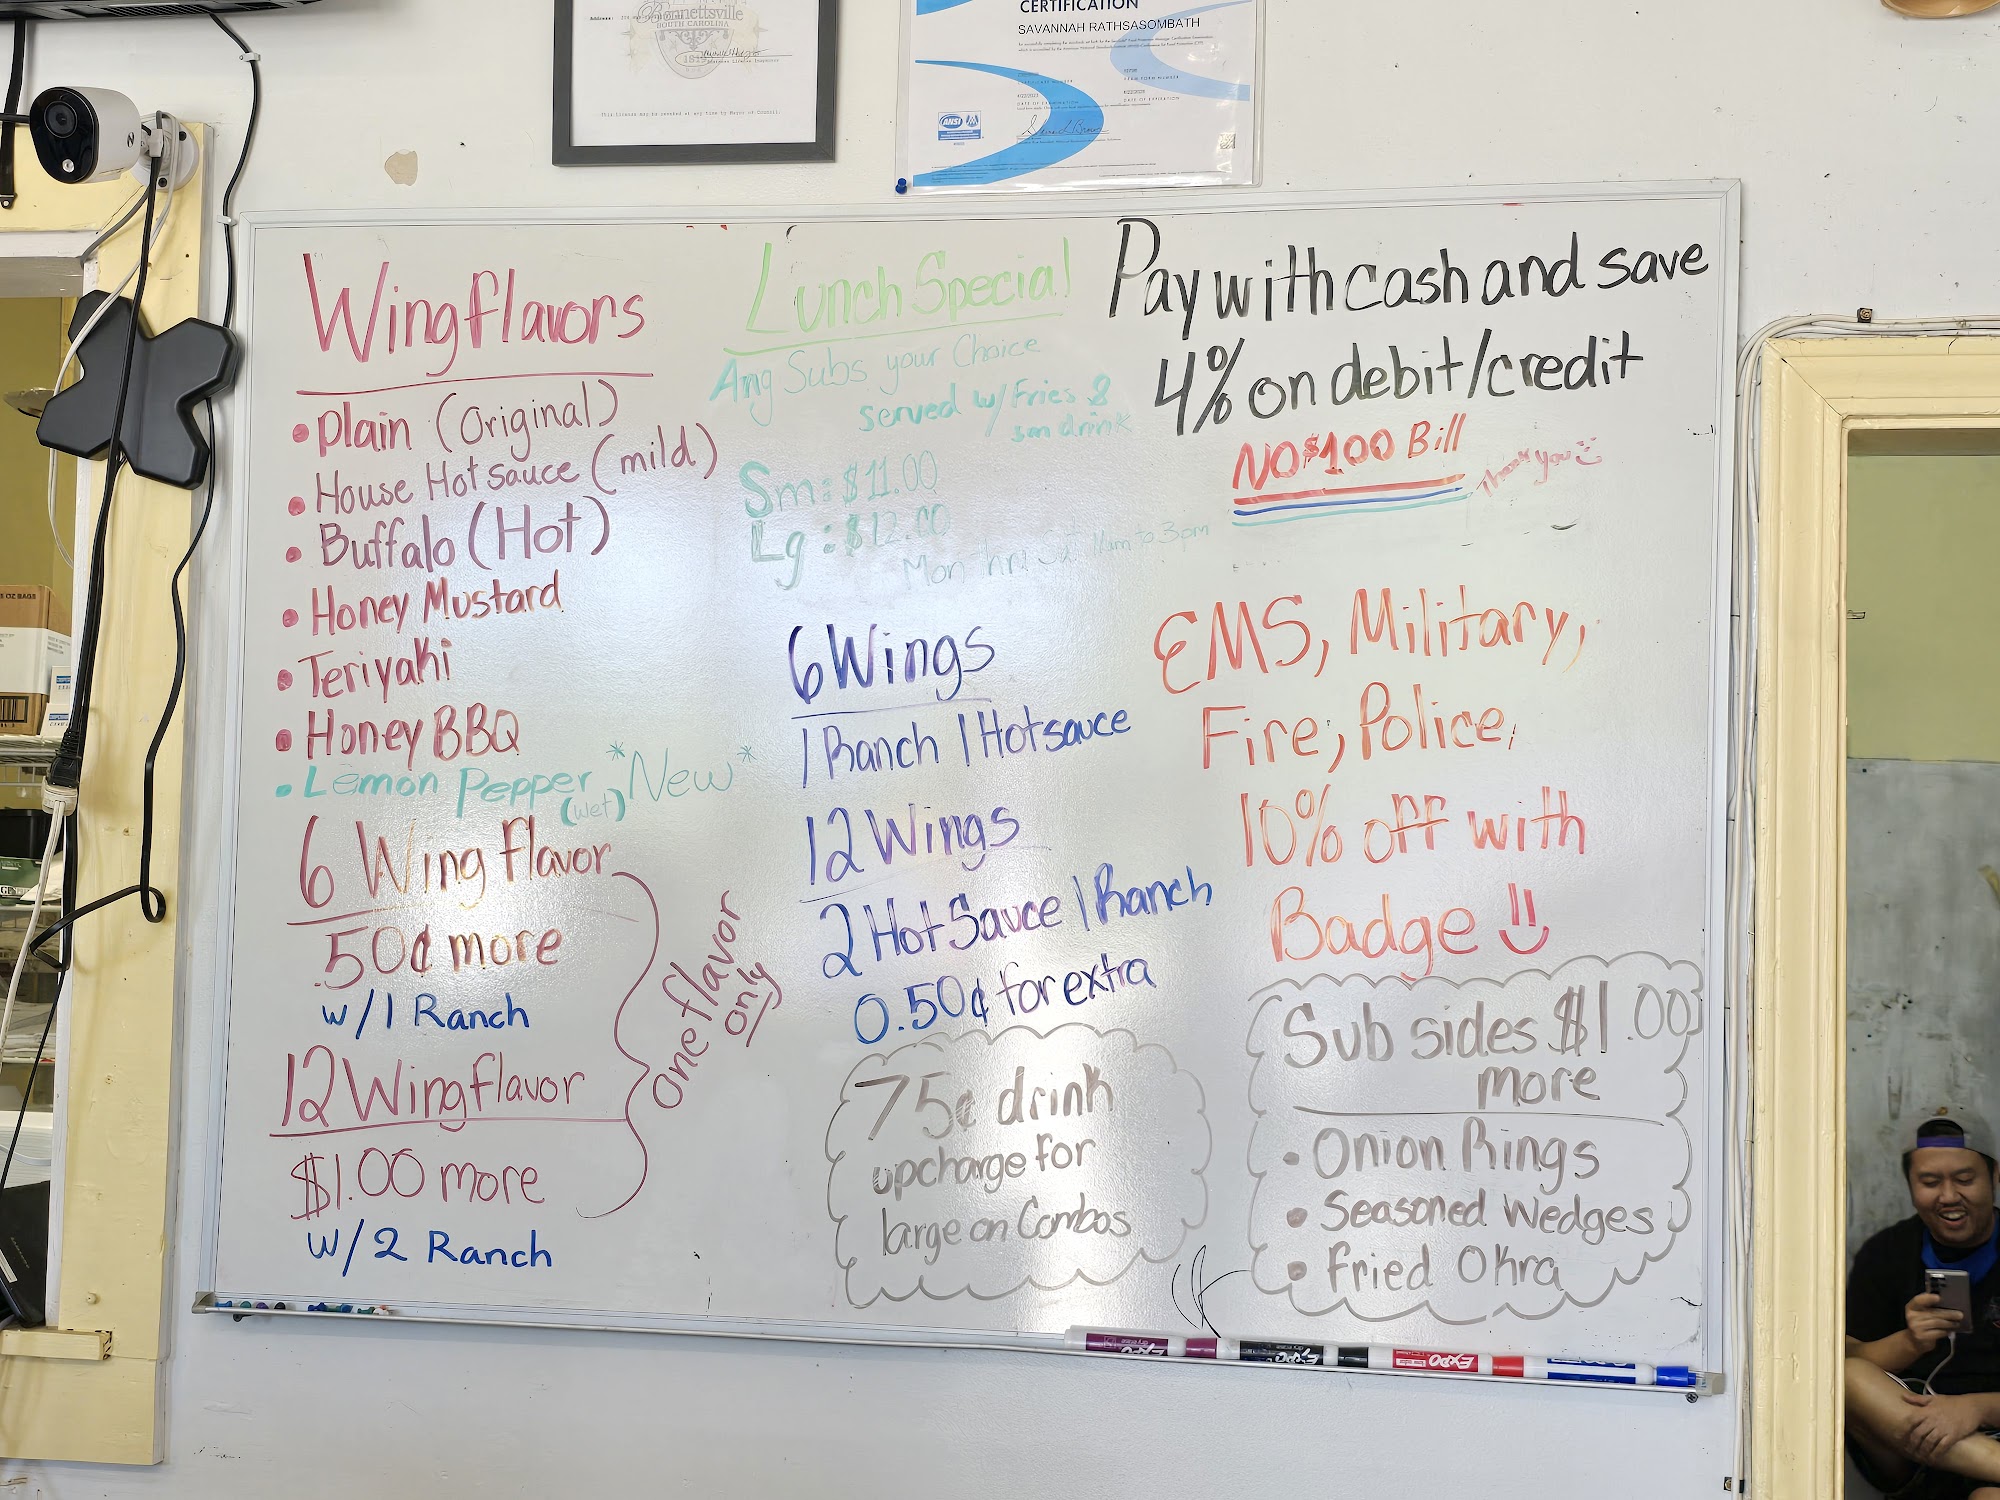 Bennettsville
SOUTH CAROLINA
This license may be revoked at any time by Mayor or Council.
CERTIFICATION
SAVANNAH RATHSASOMBATH
ANSI
Wing flavors
• Plain (Original)
• House Hot sauce (mild)
• Buffalo (Hot)
• Honey Mustard
• Teriyaki
• Honey BBQ
• Lemon Pepper *New*
(wet)
6 Wing flavor
.50¢ more
w/1 Ranch
12 Wing flavor
$1.00 more
w/2 Ranch
One flavor
only
Lunch Special
Any Subs your Choice
served w/ Fries &
sm drink
Sm: $11.00
Lg: $12.00
Mon thru Sat 11am to 3pm
6 Wings
1 Ranch 1 Hot sauce
12 Wings
2 Hot Sauce 1 Ranch
0.50¢ for extra
75¢ drink
upcharge for
large on Combos
Pay with cash and save
4% on debit/credit
NO $100 Bill
Thank you
EMS, Military,
Fire, Police,
10% off with
Badge
Sub sides $1.00
more
• Onion Rings
• Seasoned Wedges
• Fried Okra
EXPO
EXPO
EXPO